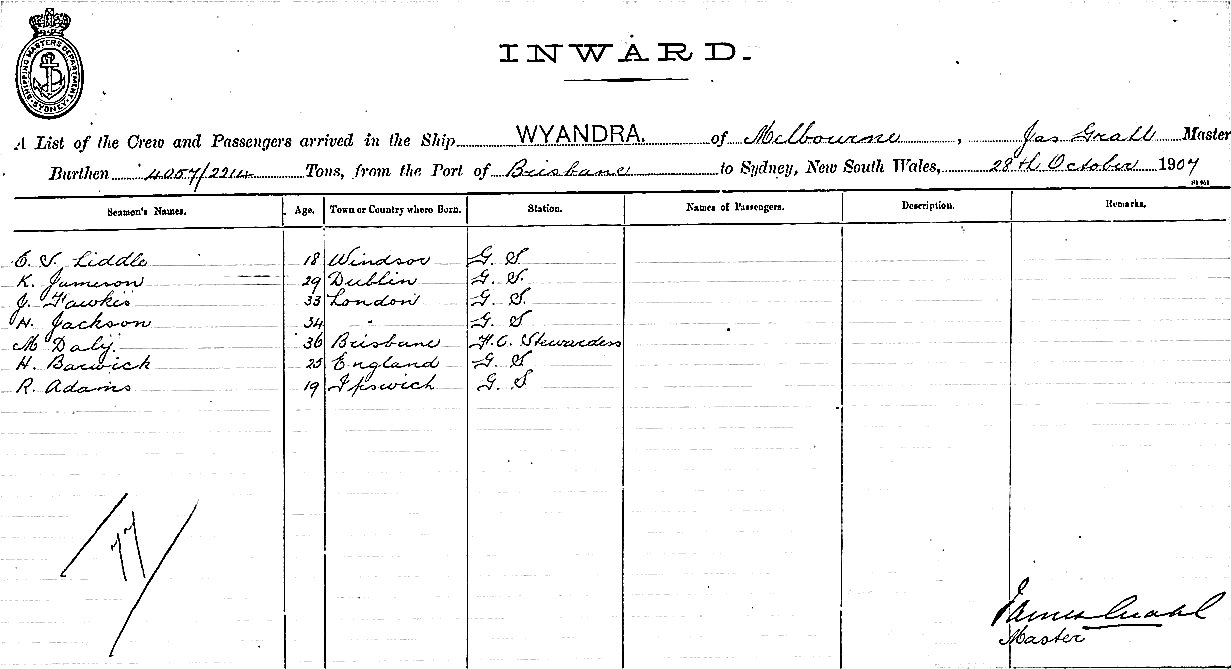 SHIPPING MASTERS DEPARTMENT SYDNEY
INWARD.
A List of the Crew and Passengers arrived in the Ship WYANDRA. of Melbourne, Jas Grahl Master
Burthen 4057/2214 Tons, from the Port of Brisbane to Sydney, New South Wales, 28th October 1907
Seamen's Names. Age. Town or Country where Born. Station. Names of Passengers. Description. Remarks.
C. S. Liddle 18 Windsor G. S
K. Jameson 29 Dublin G. S.
J. Fawkes 33 London G. S.
H. Jackson 34 " G. S
M Daly. 36 Brisbane F. C. Stewardess
H. Barwick 25 England G. S
R. Adams 19 Ipswich G. S
77
James Grahl
Master